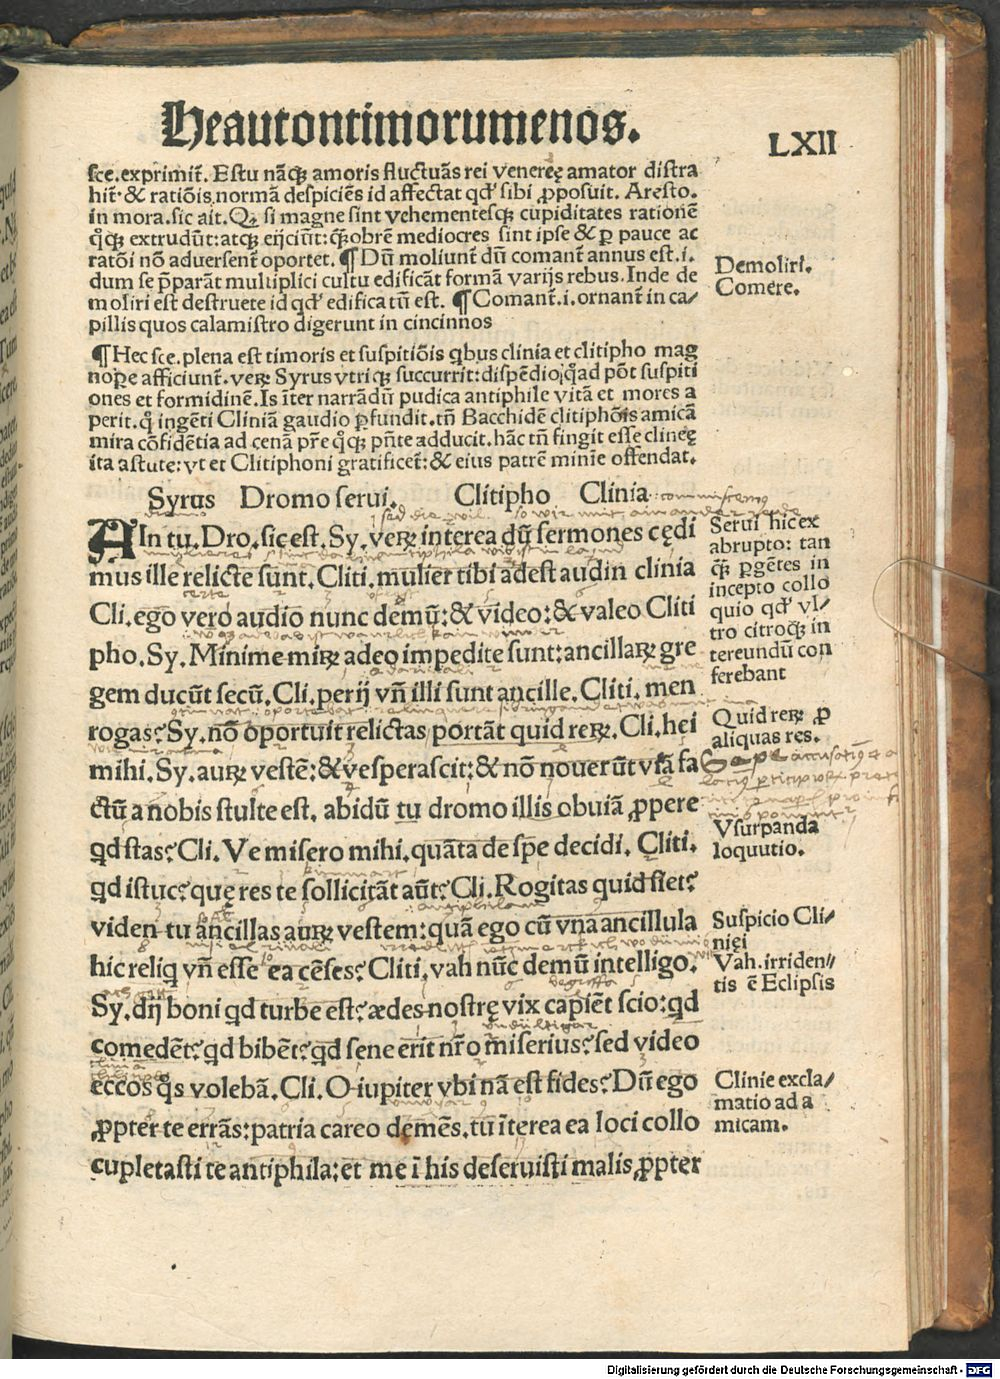 Heautontimorumenos.
LXII
sce.exprimit̄. Estu nāq; amoris fluctuās rei venereę amator distra
hit⁊ & ratiōis normā despiciēs id affectat qđ sibi ꝓposuit. Aresto.
in mora. sic ait. Qꝫ si magne sint vehementesq; cupiditates rationē
q̊q; extrudūt: atq; eijciūt: q̄obrē mediocres sint ipse & ꝑ pauce ac
ratōi nō adversent̄ oportet. ¶ Dū moliunt̄ dū comant̄ annus est.i.
dum se p̄parāt multiplici cultu edificāt formā varijs rebus. Inde de
moliri est destruete id qđ edificatū est. ¶ Comant̄.i.ornant̄ in ca/
pillis quos calamistro digerunt in cincinnos
Demoliri.
Comere.
¶ Hec sce. plena est timoris et suspitiōis q̇bus clinia et clitipho mag
nope afficiunt̄. veꝝ Syrus vtriq; succurrit: dispēdio q̇ad pōt suspiti
ones et formidinē. Is īter narrādū pudica antiphile vitā et mores a
perit. q̇ ingēti Cliniā gaudio ꝑfundit. tn̄ Bacchidē clitiphōis amicā
mira cōfidētia ad cenā pr̄e q̊q; pn̄te adducit. hāc tn̄ fingit esse clineę
ita astute: vt et Clitiphoni gratificet̄: & eius patrē minīe offendat.
Syrus Dromo serui. Clitipho Clinia
AIn tu. Dro. sic est. Sy. veꝝ interea dū sermones cędi
mus ille relicte sunt. Cliti. mulier tibi adest audin clinia
Cli. ego vero audio nunc demū: & video: & valeo Cliti
pho. Sy. Minime miꝝ adeo impedite sunt: ancillaꝝ gre
gem ducūt secū. Cli. perij vn̄ illi sunt ancille. Cliti. men
rogas? Sy. nō oportuit relictas portāt quid reꝝ. Cli. hei
mihi. Sy. auꝝ vestē: & vesperascit: & nō nouerūt vr̄ā fa
ctū a nobis stulte est. abidū tu dromo illis obuiā ꝓpere
q̇d stas? Cli. Ve misero mihi. quāta de spe decidi. Cliti.
q̇d istuc? quę res te sollicitāt aūt? Cli. Rogitas quid siet?
viden tu ancillas auꝝ vestem: quā ego cū vna ancillula
hic reliq̇ vn̄ esse ea cēses? Cliti. vah nūc demū intelligo.
Sy. dij boni q̇d turbe est? ædes nostrę vix capiēt scio: q̇d
comedēt? q̇d bibēt? q̇d sene erit nr̄o miserius? sed video
eccos q̊s volebā. Cli. O iupiter vbi nā est fides? Dū ego
ꝓpter te errās: patria careo demēs. tu īterea ea loci collo
cupletasti te antiphila: et me ī his deseruisti malis ꝓpter
Serui hic ex
abrupto: tan
q̄ꝫ ꝑgētes in
incepto collo
quio qđ vl/
tro citroq; in
tereundū con
ferebant
Quid reꝝ ꝓ
aliquas res.
Vsurpanda
loquutio.
Suspicio Cli/
nięi
Vah. irriden/
tis ē Eclipsis
Clinie excla/
matio ad a
micam.
Digitalisierung gefördert durch die Deutsche Forschungsgemeinschaft - DFG